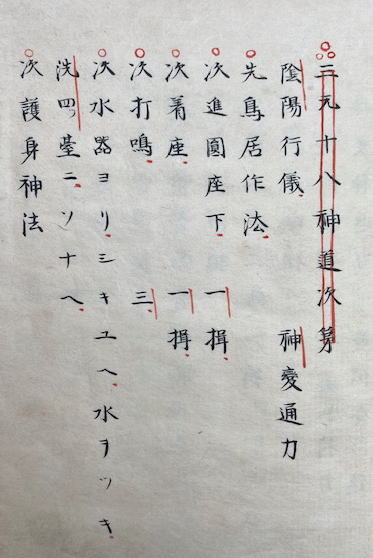 三元十八神道次第
陰陽行儀 神変通力
先鳥居作法
次進圓座下 一揖
次着座 一揖
次打鳴 三
次水器ヨリシキユヘ水ヲツキ
洗四臺ニソナヘ
次護身神法